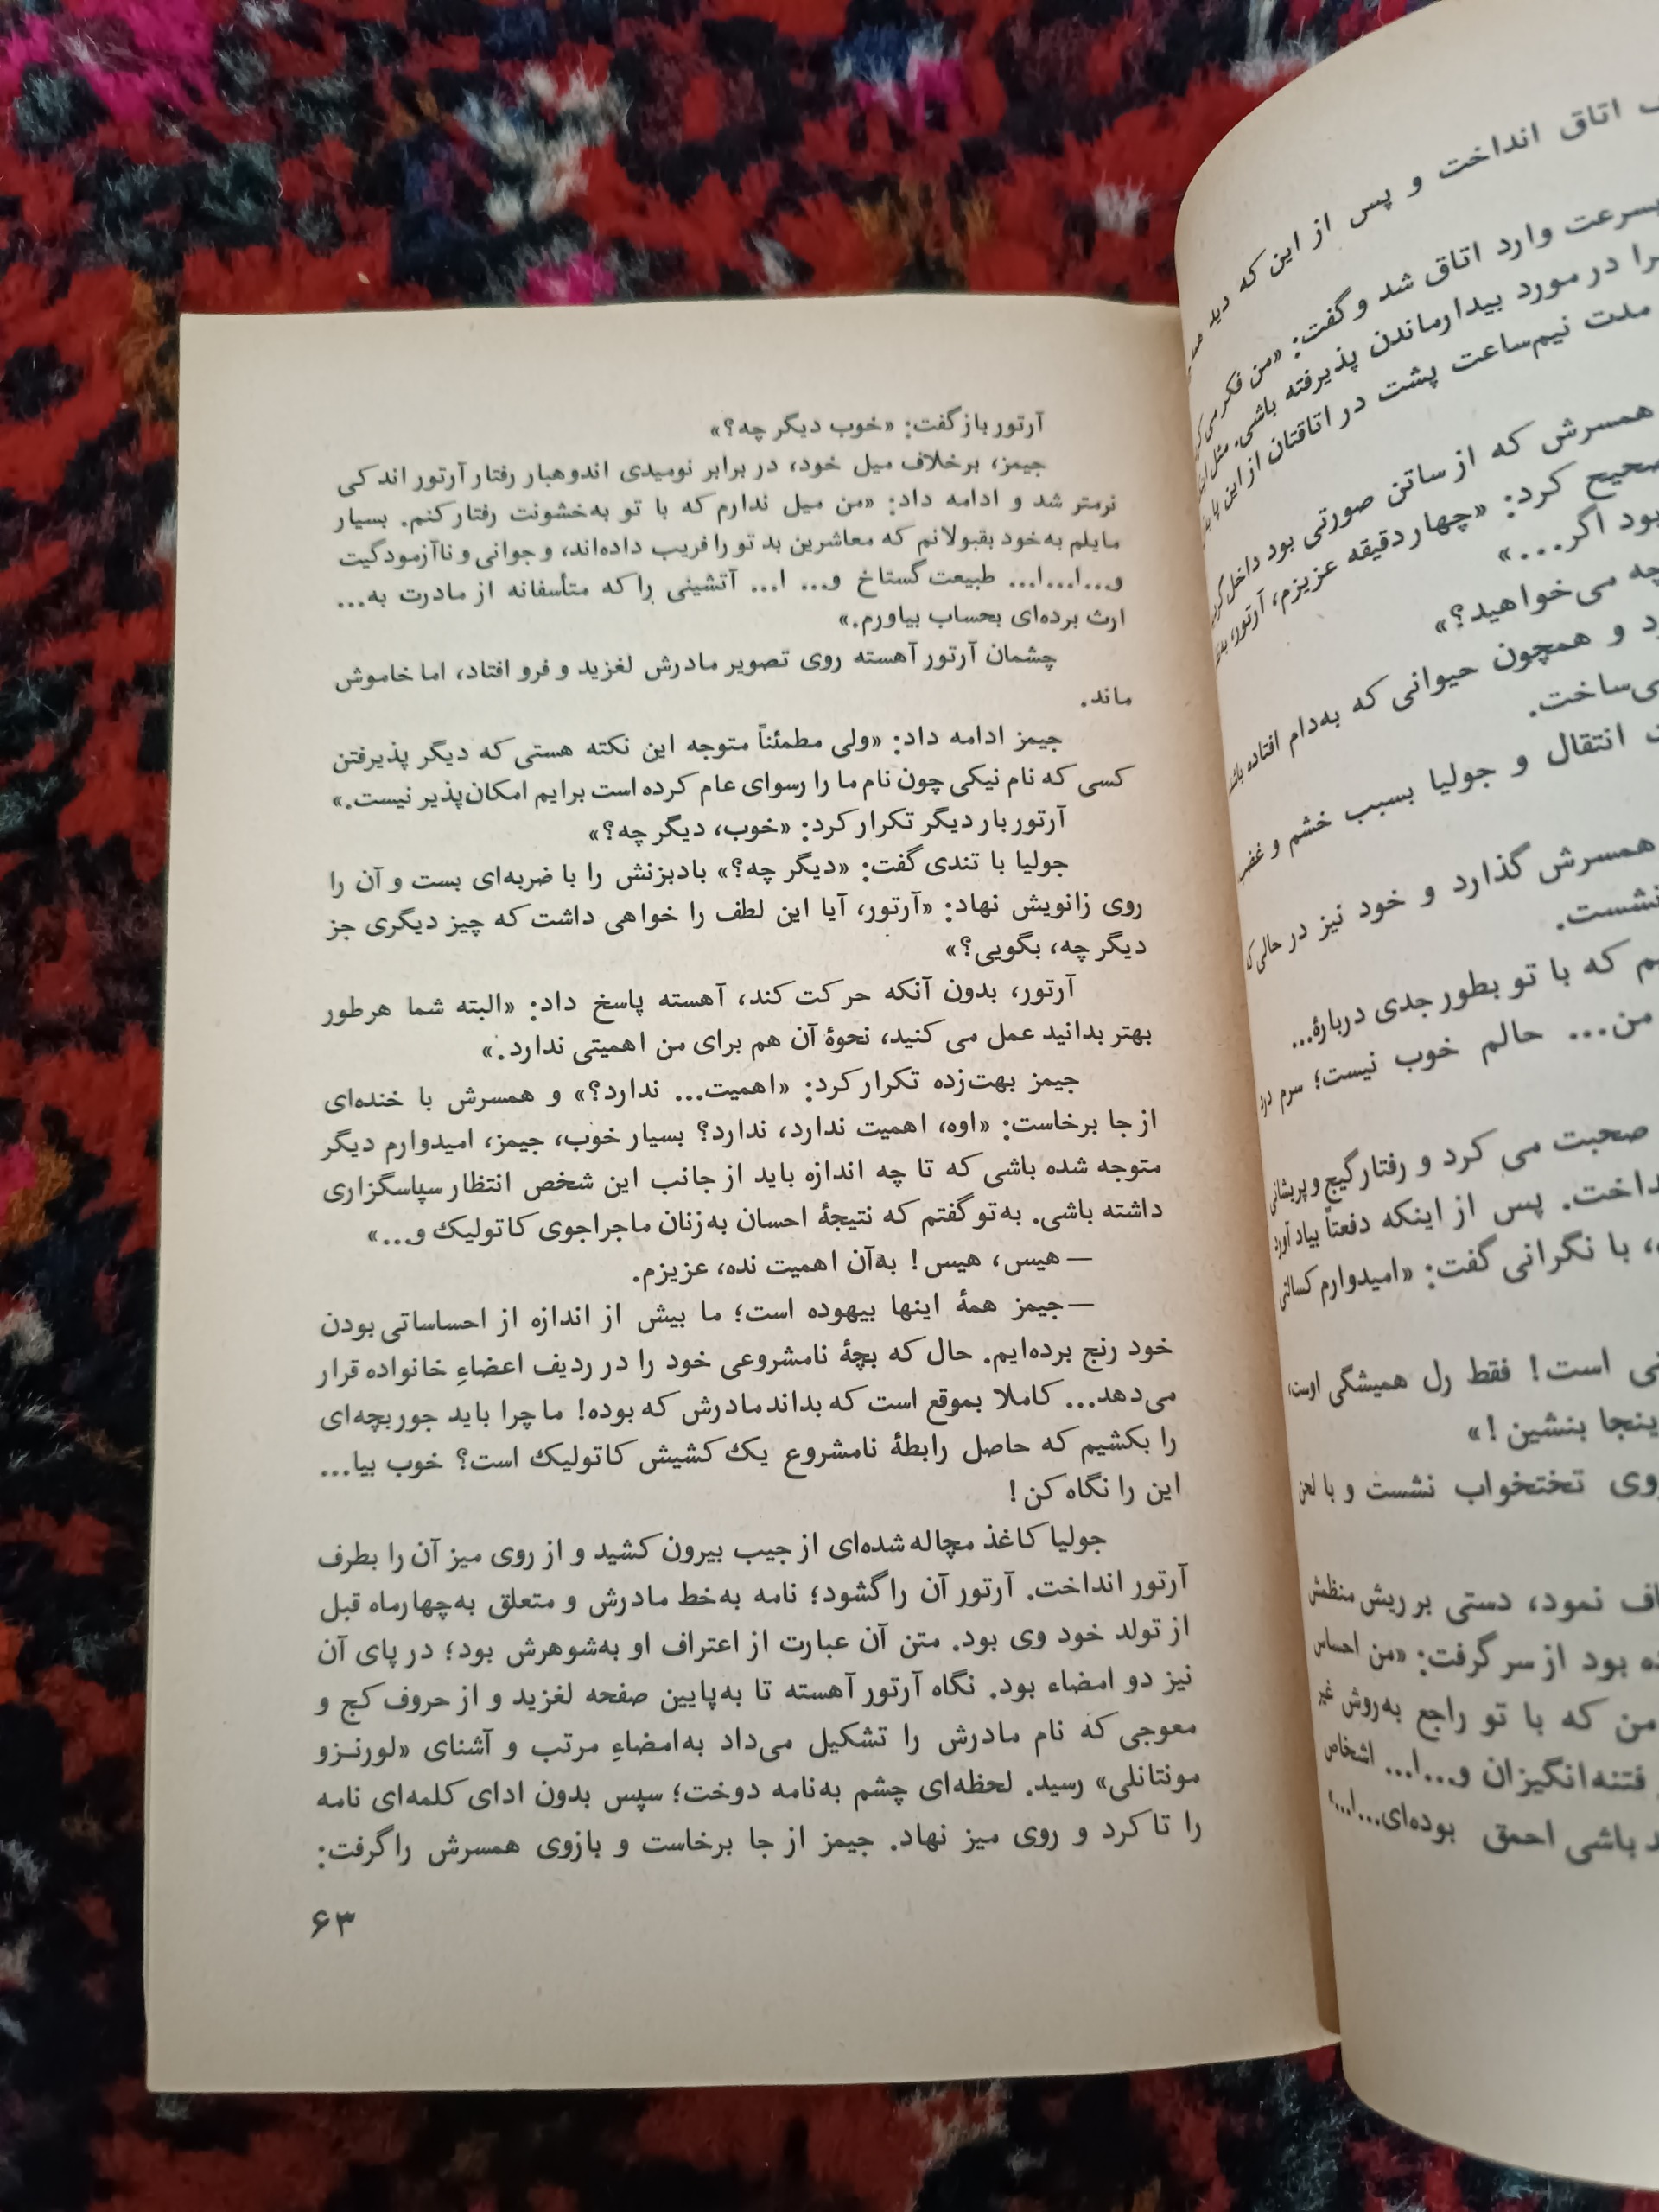 آرتور بازگفت: «خوب دیگر چه؟»
جیمز، برخلاف میل خود، در برابر نومیدی اندوهبار رفتار آرتور اندکی
نرمتر شد و ادامه داد: «من میل ندارم که با تو به‌خشونت رفتار کنم. بسیار
مایلم به‌خود بقبولانم که معاشرین بد تو را فریب داده‌اند، و جوانی و ناآزمودگیت
و...ا...ا... طبیعت گستاخ و... ا... آتشینی را که متأسفانه از مادرت به...
ارث برده‌ای بحساب بیاورم.»
چشمان آرتور آهسته روی تصویر مادرش لغزید و فرو افتاد، اما خاموش
ماند.
جیمز ادامه داد: «ولی مطمئناً متوجه این نکته هستی که دیگر پذیرفتن
کسی که نام نیکی چون نام ما را رسوای عام کرده است برایم امکان‌پذیر نیست.»
آرتور بار دیگر تکرار کرد: «خوب، دیگر چه؟»
جولیا با تندی گفت: «دیگر چه؟» بادبزنش را با ضربه‌ای بست و آن را
روی زانویش نهاد: «آرتور، آیا این لطف را خواهی داشت که چیز دیگری جز
دیگر چه، بگویی؟»
آرتور، بدون آنکه حرکت کند، آهسته پاسخ داد: «البته شما هرطور
بهتر بدانید عمل می‌کنید، نحوهٔ آن هم برای من اهمیتی ندارد.»
جیمز بهت‌زده تکرار کرد: «اهمیت... ندارد؟» و همسرش با خنده‌ای
از جا برخاست: «اوه، اهمیت ندارد، ندارد؟ بسیار خوب، جیمز، امیدوارم دیگر
متوجه شده باشی که تا چه اندازه باید از جانب این شخص انتظار سپاسگزاری
داشته باشی. به‌تو گفتم که نتیجهٔ احسان به‌زنان ماجراجوی کاتولیک و...»
— هیس، هیس! به‌آن اهمیت نده، عزیزم.
— جیمز همهٔ اینها بیهوده است؛ ما بیش از اندازه از احساساتی بودن
خود رنج برده‌ایم. حال که بچهٔ نامشروعی خود را در ردیف اعضاءِ خانواده قرار
می‌دهد... کاملا بموقع است که بداند مادرش که بوده! ما چرا باید جور بچه‌ای
را بکشیم که حاصل رابطهٔ نامشروع یک کشیش کاتولیک است؟ خوب بیا...
این را نگاه کن!
جولیا کاغذ مچاله شده‌ای از جیب بیرون کشید و از روی میز آن را بطرف
آرتور انداخت. آرتور آن را گشود؛ نامه به‌خط مادرش و متعلق به‌چهارماه قبل
از تولد خود وی بود. متن آن عبارت از اعتراف او به‌شوهرش بود؛ در پای آن
نیز دو امضاء بود. نگاه آرتور آهسته تا به‌پایین صفحه لغزید و از حروف کج و
معوجی که نام مادرش را تشکیل می‌داد به‌امضاءِ مرتب و آشنای «لورنـزو
مونتانلی» رسید. لحظه‌ای چشم به‌نامه دوخت؛ سپس بدون ادای کلمه‌ای نامه
را تا کرد و روی میز نهاد. جیمز از جا برخاست و بازوی همسرش را گرفت:
۶۳
اتاق انداخت و پس از این که دید
بسرعت وارد اتاق شد و گفت: «من فکر
را در مورد بیدارماندن پذیرفته باشی. مثل
مدت نیم‌ساعت پشت در اتاقتان از این پا
همسرش که از ساتن صورتی بود داخل
کرد: «چهار دقیقه عزیزم، آرتور،
بود اگر...»
چه می‌خواهید؟»
و همچون حیوانی که به‌دام افتاده
می‌ساخت.
انتقال و جولیا بسبب خشم و غضب
همسرش گذارد و خود نیز در حالی که
نشست.
که با تو بطور جدی دربارهٔ...
من... حالم خوب نیست؛ سرم درد
صحبت می‌کرد و رفتار گیج و پریشانی
پس از اینکه دفعتاً بیاد آورد
با نگرانی گفت: «امیدوارم کسالتی
است! فقط رل همیشگی اوست،
اینجا بنشین!»
روی تختخواب نشست و با لحن
نمود، دستی بر ریش منظمش
بود از سر گرفت: «من احساس
من که با تو راجع به‌روش غیر
فتنه‌انگیزان و...ا... اشخاص
باشی احمق بوده‌ای...ا...»